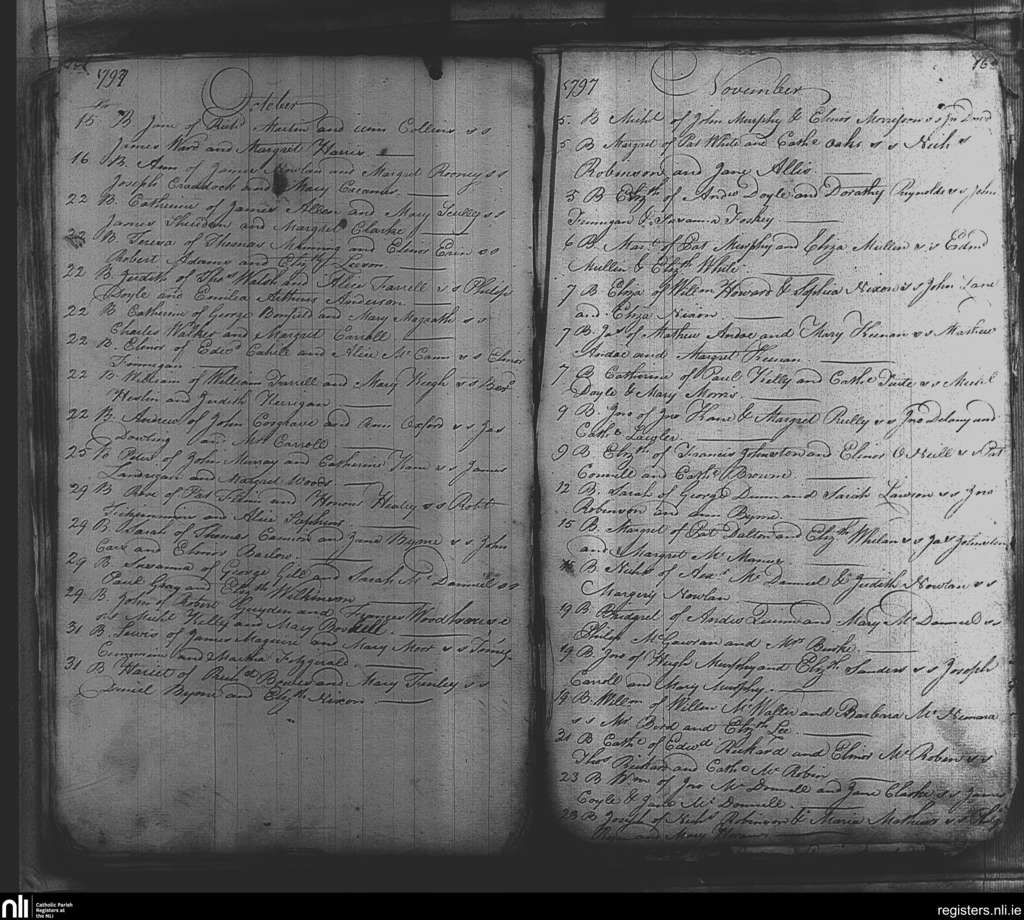 1797
October
15 B June of Rich.d Martin and ann Collins s s
James Ward and Margret Harris
16 B Ann of James Nowlan and Margret Rooney s s
Joseph Craddock and Mary
22 B. Catherine of James Allen and Mary Scully s s
James Sheridan and Margret Clarke
22 B Teresa of Thomas Manning and Elinor s s
Robert Adams and Eliz.th
22 B Judith of Tho.s Walsh and Alice Farrell s s Philip
Doyle and Emilia Arthurs Anderson
22 B Catherine of George Bonfield and Mary Magrath s s
Charles Walker and Margret Carroll
22 B. Elinor of Edw.d Cahill and Alice Mc Cann s s Elinor
Finnegan
22 B William of William Farrell and Mary Hugh s s
and Judith Kerrigan
22 B. Andrew of John Cosgrave and Ann Oxford s s Jas
Dowling and Mrs Carroll
25 B Peter of John Murray and Catherine Kane s s James
Lanargan and Margret Woods
29 B Rose of Pat and Honour Healey s s Rob.t
and Alice Stephens
29 B Sarah of Thomas Cannon and Jane Byrne s s John
Carr and Elinor Barlow
29 B Susanna of George Gill and Sarah Mc Danniel s s
Paul Gray and Eliz.th Wilkinson
29 B John of Robert and Frances Woodhouse
s s Mich.l Kelly and Mary
31 B Lewis of James Maguire and Mary Moor s s
and Martha Fitzgerald
31 B Hariet of and Mary Tunley s s
Daniel Byrne and Eliz.th Nixon
1797
November
5. B Mich.l of John Murphy & Elinor Morrison s s Jn
5 B Margret of Pat White and Cath.e Oaks s s Nich.s
Robinson and Jane Allis
5 B Eliz.th of Andw Doyle and Dorathy Reynolds s s John
Finnigan & Susanna
6 B Mar.t of Pat Murphy and Eliza Mullen s s Edm.d
Mullen & Eliz.th White
7 B Eliza of Willm Howard & Sophia Nixon s s John Lane
and Eliza Nixon
7 B. Jas of Mathew Andoe and Mary Keenan s s Mathew
Andoe and Margret Keenan
7 B Catherine of Paul Kelly and Cath.e Tuite s s Mich.l
Doyle & Mary Morris
9 B. Jno of Jno Kane & Margret Reilly s s Jno Delany and
Cath.e
9 B Eliz.th of Francis Johnston and Elinor O Neill s s Pat
Connell and Cath.e Browne
12 B. Sarah of George Dunn and Sarah Lawson s s Jno
Robinson and ann Byrne
15 B. Margret of Pat Dalton and Eliz.th Whelan s s Jas Johnston
and Margret Mc Manus
B Nich.s of Alex.r Mc Dannel & Judith Nowlan s s
Margery Nowlan
19 B Bridget of Andw Quinn and Mary Mc Donnell s s
Philip Mc Gawran and Mrs Burke
19 B Jno of Hugh Murphy and Eliz.th Sanders s s Joseph
Carroll and Mary Murphy
19 B. Willm of Willm Mc and Barbara Mc Nemara
s s Mr Bird and Eliz.th Lee
21 B Cath.e of Edw.d Rickard and Elinor Mc Robin s s
Tho.s Rickard and Cath.e Mc Robin
23 B Wm of Jno Mc Donnell and Jane Clarke s s James
Coyle & Jane Mc Donnell
23 B Joseph of Nich.s Robinson & Maria Mathews s s
and Mary
nli
Catholic Parish
Registers at
the NLI
registers.nli.ie